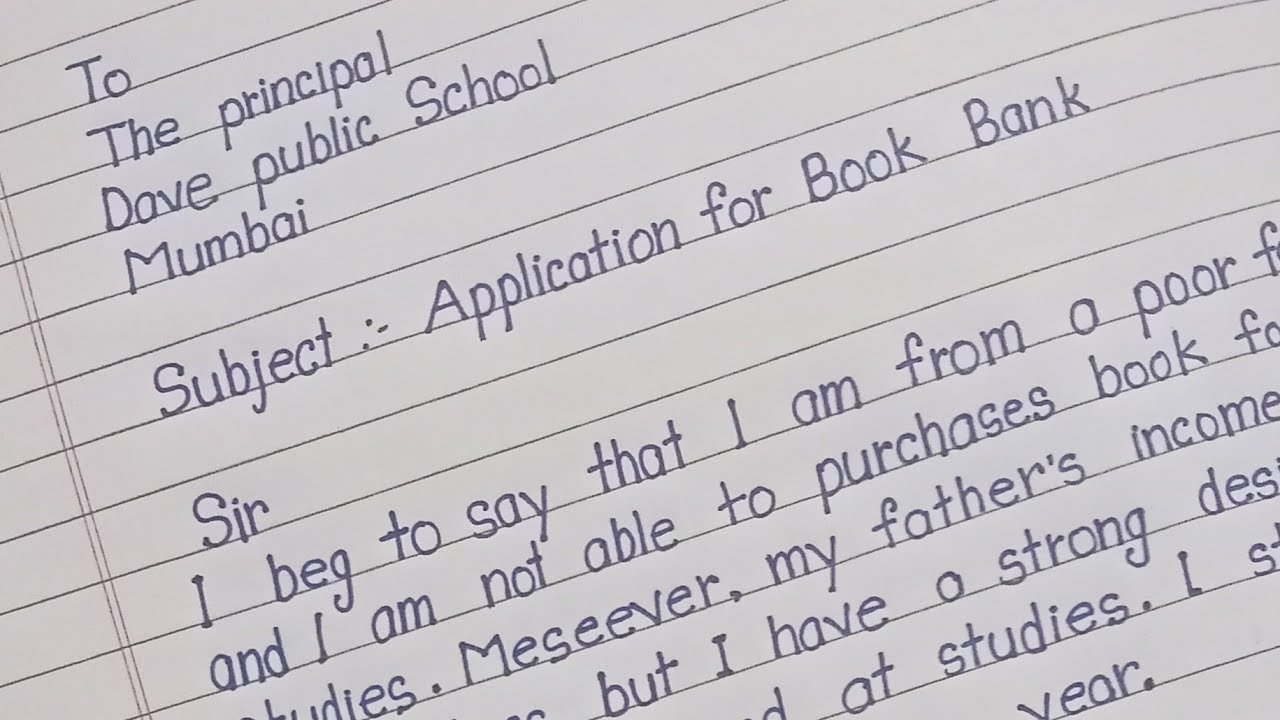 To
The principal
Dave public School
Mumbai
Subject :- Application for Book Bank
Sir
I beg to say that I am from a poor
and I am not able to purchases book
studies. Meseever, my father's income
but I have a strong
at studies. I
year.